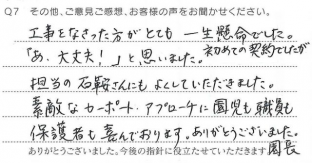 Q7 その他、ご意見ご感想、お客様の声をお聞かせください。
工事をなさった方がとても一生懸命でした。
「あ、大丈夫！」と思いました。初めての契約でしたが
担当の石鞍さんにもよくしていただきました。
素敵なカーポート・アプローチに園児も職員も
保護者も喜んでおります。ありがとうございました。
園長
ありがとうございました。今後の指針に役立たせていただきます